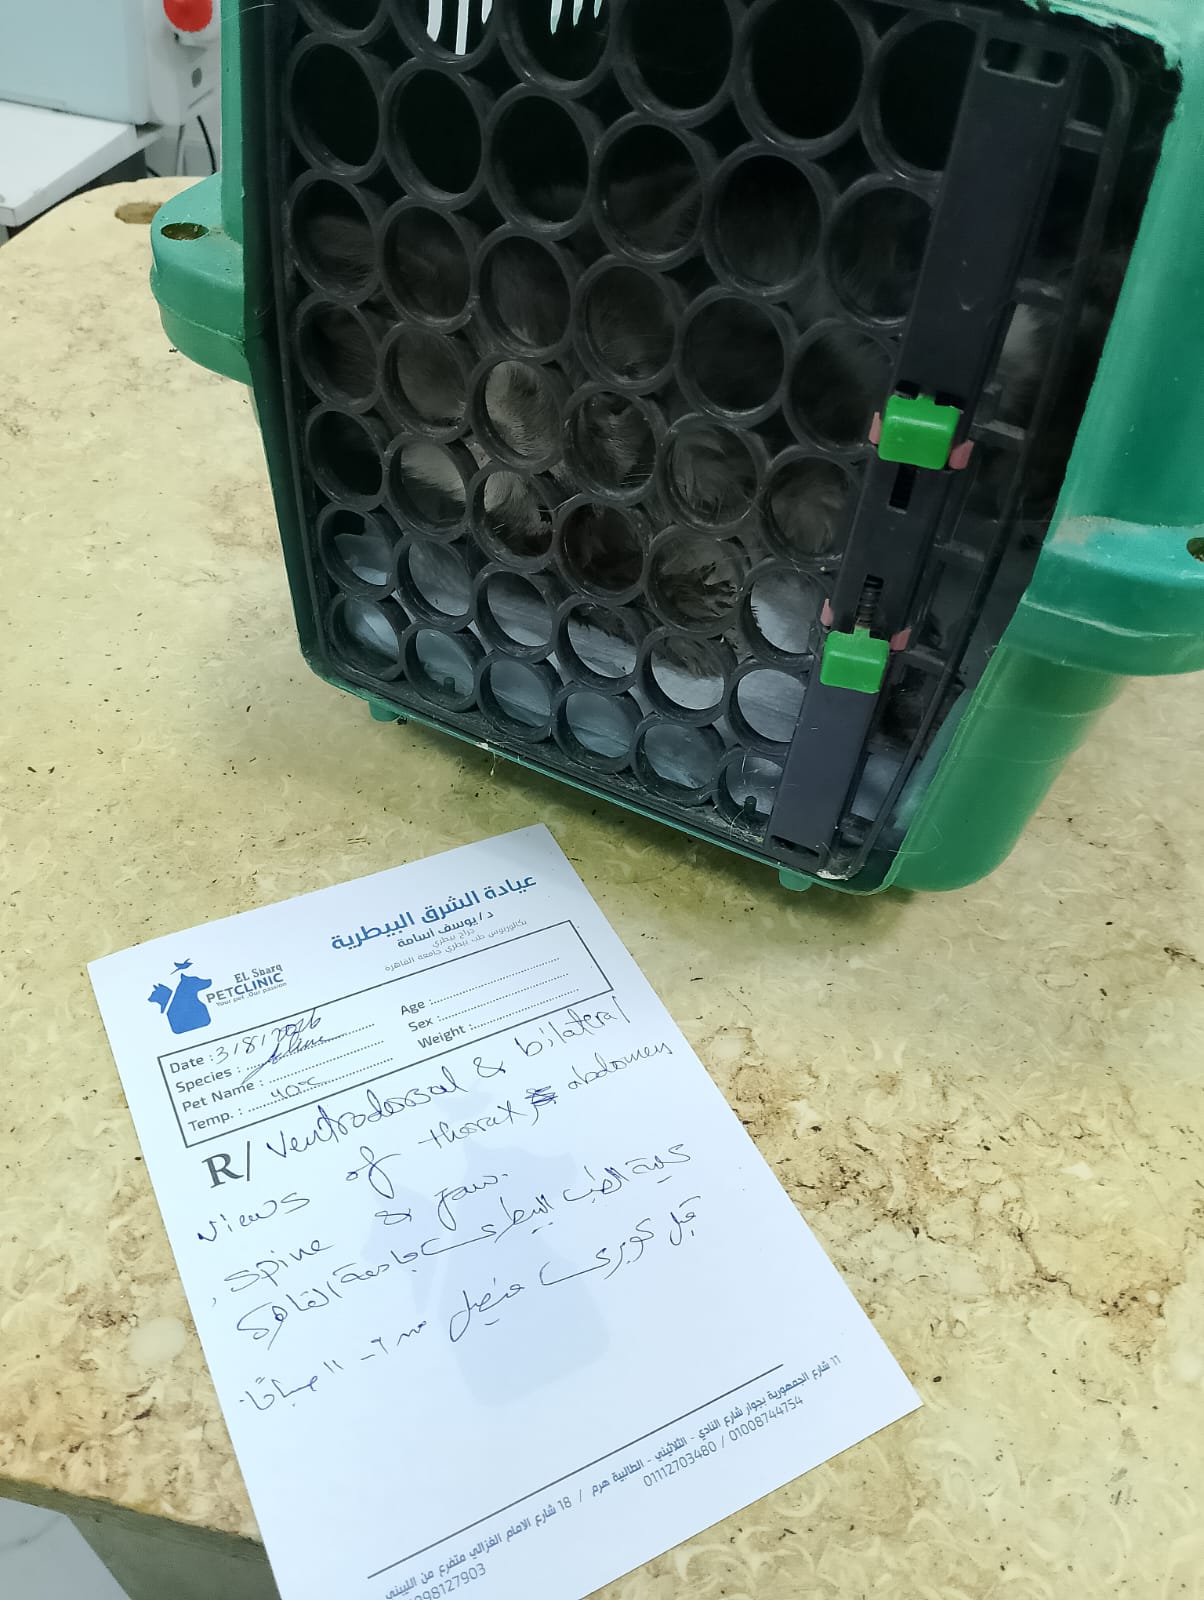 عيادة الشرق البيطرية
د/ يوسف أسامة
جراح بيطري
بكالوريوس طب بيطري جامعة القاهرة
EL Sharq
PETCLINIC
Your pet .Our passion
Date : 3/8/2026
Age :
Species :
Sex :
Pet Name :
Weight :
Temp. : 40°C
R/ Ventrodorsal & bilateral
views of thorax, abdomen
, spine & jaw.
كلية الطب البيطري جامعة القاهرة
قبل كوبري فيصل من ٩ - ١١ صباحًا.
11 شارع الجمهورية بجوار شارع النادي - الثلاثيني - الطالبية هرم / 18 شارع الامام الغزالي متفرع من الليبيني
01112703480 / 01008744754
098127903